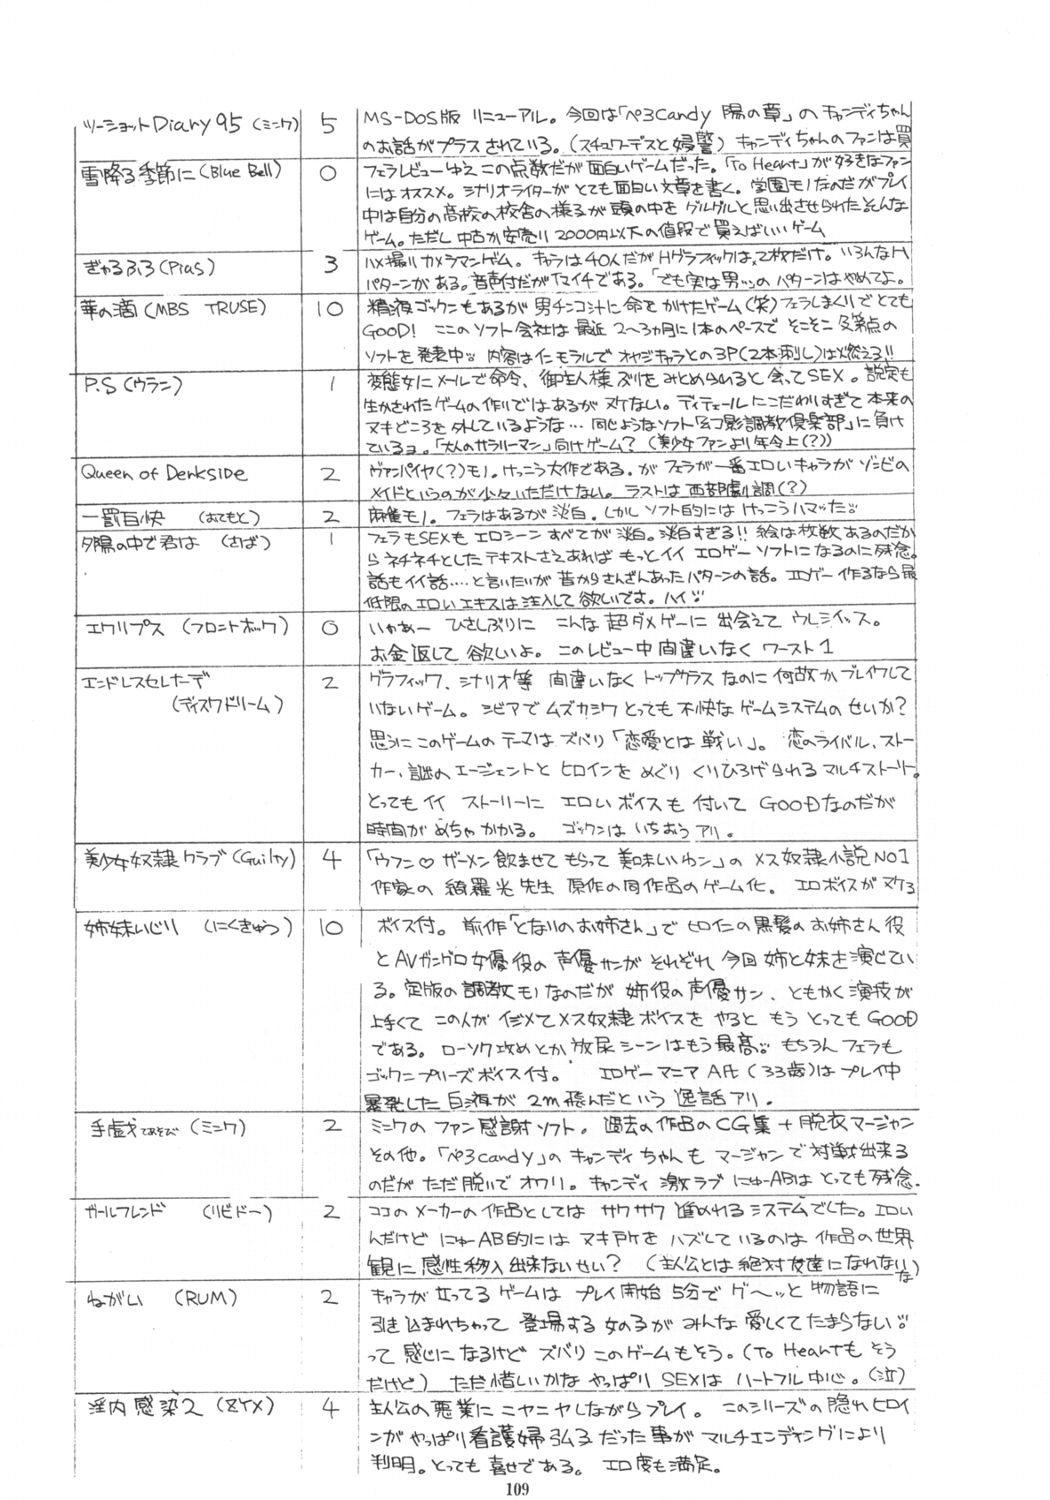 ツーショットDiary95(ミンク) 5 MS-DOS版 リニューアル。今回は「ぺろCandy 陽の章」のキャンディちゃん
のお話がプラスされている。(スチュワーデスと婦警) キャンディちゃんのファンは買
雪降る季節に(Blue Bell) 0 フェラレビューゆえこの点数だが面白いゲームだった。「To Heart」が好きなファン
にはオススメ。シナリオライターがとても面白い文章を書く。学園モノなのだがプレイ
中は自分の高校の校舎の様子が頭の中をグルグルと思い出させられたそんな
ゲーム。ただし中古か安売り2000円以下の値段で買えばいいゲーム
ぎゃるふろ(Pias) 3 ハメ撮りカメラマンゲム。キャラは40人だがHグラフィックは、2枚だけ。いろんなH
パターンがある。音声付だがイマイチである。「でも実は男ッ」のパターンはやめてよ。
華の滴(MBS TRUSE) 10 精液ゴックンもあるが男チンコ汁に命をかけたゲーム(笑)フェラしまくりでとても
GOOD! ここのソフト会社は最近2〜3か月に1本のペースでそこそこ及第点の
ソフトを発表中!! 内容はインモラルでオヤジキャラとの3P(2本刺し)は燃える!!
P.S(ウラン) 1 変態女にメールで命令、御主人様ぶりをみとめられると会ってSEX。設定も
生かされたゲームの作りではあるがヌケない。ディテェールにこだわりすぎて本来の
ヌキどころを外しているような… 同じようなソフト「幻影調教倶楽部」に負け
ているヨ。「大人のサラリーマン」向けゲーム? (美少女ファンより年令上(?))
Queen of Denkside 2 ヴァンパイヤ(?)モノ。けっこう大作である。がフェラが一番エロいキャラがゾンビの
メイドというのが少々いただけない。ラストは西部劇調(?)
一罰百快 (おてもと) 2 麻雀モノ。フェラはあるが淡白。しかしソフト的にはけっこうハマッた!!
夕陽の中で君は (さば) 1 フェラもSEXもエロシーンすべてが淡白。淡白すぎる!! 絵は枚数あるのだか
らネチネチとしたテキストさえあればもっとイイエロゲーソフトになるのに残念。
話もイイ話....と言いたいが昔からさんざんあったパターンの話。エロゲー作るなら最
低限のエロいエキスは注入して欲しいです。ハイ!!
エクリプス (フロントホック) 0 いゃあー ひさしぶりに こんな超ダメゲーに出会えてウレシイッス。
お金返して欲しいよ。このレビュー中間違いなくワースト1
エンドレスセレナーデ 2 グラフィック、シナリオ等 間違いなくトップクラスなのに何故かブレイクして
(ディスクドリーム) いないゲーム。シビアでムズカシクとっても不快なゲームシステムのせいか?
思うにこのゲームのテーマはズバリ「恋愛とは戦い」。恋のライバル、ストー
カー、謎のエージェントとヒロインをめぐりくりひろげられるマルチストーリー。
とってもイイストーリーに エロいボイスも付いてGOODなのだが
時間がめちゃかかる。 ゴックンはいちおうアリ。
美少女奴隷クラブ(Guilty) 4 「ウフン♡ ザーメン飲ませてもらって美味しいわン」のメス奴隷小説NO1
作家の綺羅光先生原作の同作品のゲーム化。エロボイスがヌケる
姉妹いじり (にくきゅう) 10 ボイス付。前作「となりのお姉さん」でヒロインの黒髪のお姉さん役
とAVガングロ女優役の声優サンがそれぞれ今回姉と妹を演じてい
る。定版の調教モノなのだが姉役の声優サン、ともかく演技が
上手くてこの人がイジメてメス奴隷ボイスをやるともうとってもGOOD
である。ローソク攻めとか放尿シーンはもう最高!! もちろんフェラも
ゴックンプリーズボイス付。 エロゲーマニアA氏(33歳)はプレイ中
暴発した白液が2m飛んだという逸話アリ。
手虚戈てあそび(ミンク) 2 ミンクのファン感謝ソフト。過去の作品のCG集+脱衣マージャン
その他。「ぺろcandy」のキャンディちゃんもマージャンで対戦出来る
のだがただ脱いでオワリ。キャンディ激ラブにゅーABはとっても残念.
ガールフレンド (リビドー) 2 ココのメーカーの作品としてはサクサク進めれるシステムでした。エロい
んだけどにゅーAB的にはマキドケをハズしているのは作品の世界
観に感性移入出来ないせい? (主人公とは絶対友達になれないな)
ねがい (RUM) 2 キャラが立ってるゲームはプレイ開始5分でグ〜ッと物語に
引き込まれちゃって登場する女の子がみんな愛しくてたまらない!!
って感じになるけどズバリこのゲームもそう。(To Heartもそう
だけど) ただ惜しいかなやっぱりSEXはハートフル中心。(泣)
淫内感染2 (ZYX) 4 主人公の悪業にニヤニヤしながらプレイ。このシリーズの隠れヒロイ
ンがやっぱり看護婦弘子だった事がマルチエンディングにより
判明。とっても喜せである。エロ度も満足。
109